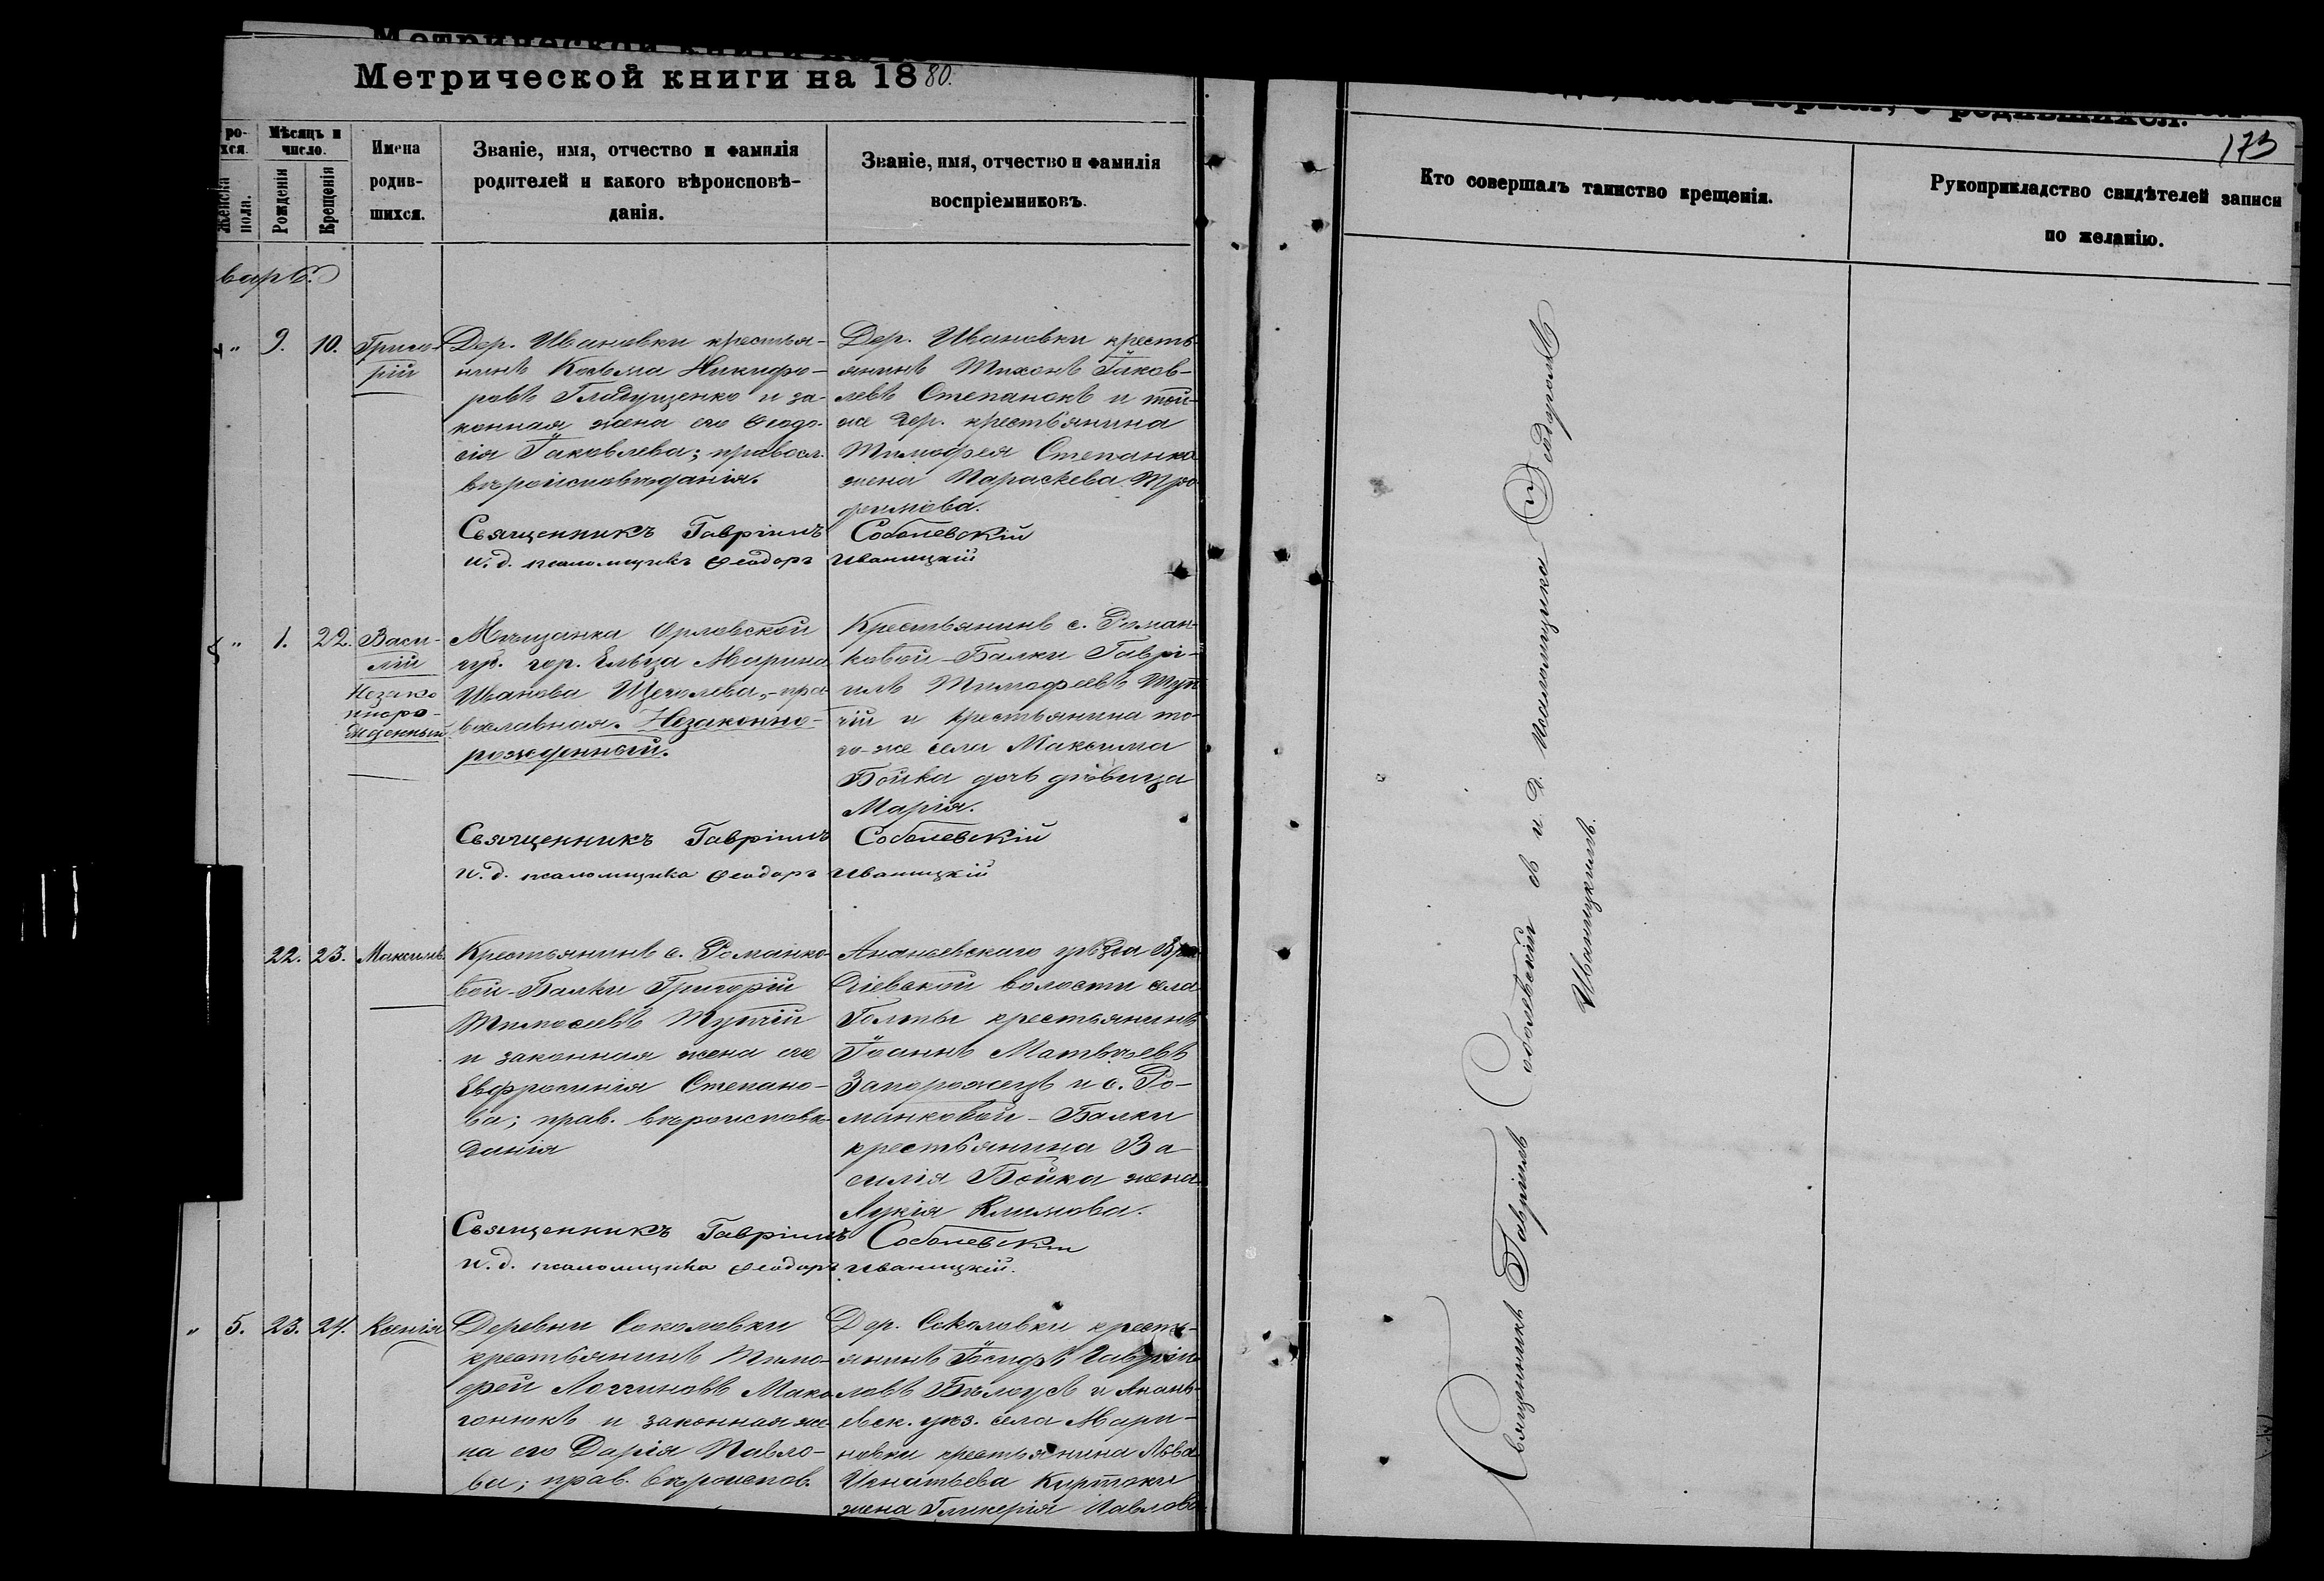 Метрической книги на 1880.
ро-
хся.
Женска
пола.
Мѣсяцъ и
число.
Рожденія
Крещенія
Имена
родив-
шихся.
Званіе, имя, отчество и фамилія
родителей и какого вѣроисповѣ-
данія.
Званіе, имя, отчество и фамилія
воспріемниковъ.
варь.
" 9. 10.
Григо-
рій
Дер. Ивановки крестья-
нинъ Козьма Никифо-
ровъ Гладущенко и за-
конная жена его Ѳеодо-
сія Іаковлева; правосл.
вѣроисповѣданія.
Дер. Ивановки кресть-
янинъ Тихонъ Іаков-
левъ Степанокъ и той-
же дер. крестьянина
Тимофея Степанка
жена Параскева Тро-
фимова.
Священникъ Гавріилъ Соболевскій
и. д. псаломщикъ Ѳеодоръ Иваницкій
" 1. 22.
Васи-
лій
Незако
ннорo-
жденный
Мѣщанка Орловской
губ. гор. Ельца Марина
Иванова Щеголева,- пра-
вославная. Незаконно-
рожденный.
Крестьянинъ с. Роман-
ковой-Балки Гаврі-
илъ Тимофеевъ Туп
чій и крестьянина то-
го-же села Максима
Бойка дочь дѣвица
Марія.
Священникъ Гавріилъ Соболевскій
и. д. псаломщика Ѳеодоръ Иваницкій
22. 23. Максимъ
Крестьянинъ с. Романко-
вой-Балки Григорій
Тимоѳеевъ Тупчій
и законная жена его
Евфросинія Степано-
ва; прав. вѣроисповѣ-
данія
Ананьевскаго уѣзда Вра
діевской волости села
Голты крестьянинъ
Іоаннъ Матвѣевъ
Запорожецъ и с. Ро-
манковой-Балки
крестьянина Ва-
силія Бойка жена
Лукія Климова.
Священникъ Гавріилъ Соболевскій
и. д. псаломщика Ѳеодоръ Иваницкій.
" 5. 23. 24. Ксенія
Деревни Соколовки
крестьянинъ Тимо-
фей Логгиновъ Мако
гонюкъ и законная же-
на его Дарія Павло-
ва; прав. вѣроиспов.
Дер. Соколовки кресть-
янинъ Іосифъ Гавріи
ловъ Бѣлоусъ и Анань-
евск. уѣз. села Мари-
новки крестьянина Льва
Игнатьева Киртоки
жена Гликерія Павлова
173
Кто совершалъ таинство крещенія.
Рукоприкладство свидѣтелей записи
по желанію.
Священникъ Гавріилъ Соболевскій съ и. д. псаломщика Ѳеодоромъ
Иваницкимъ.